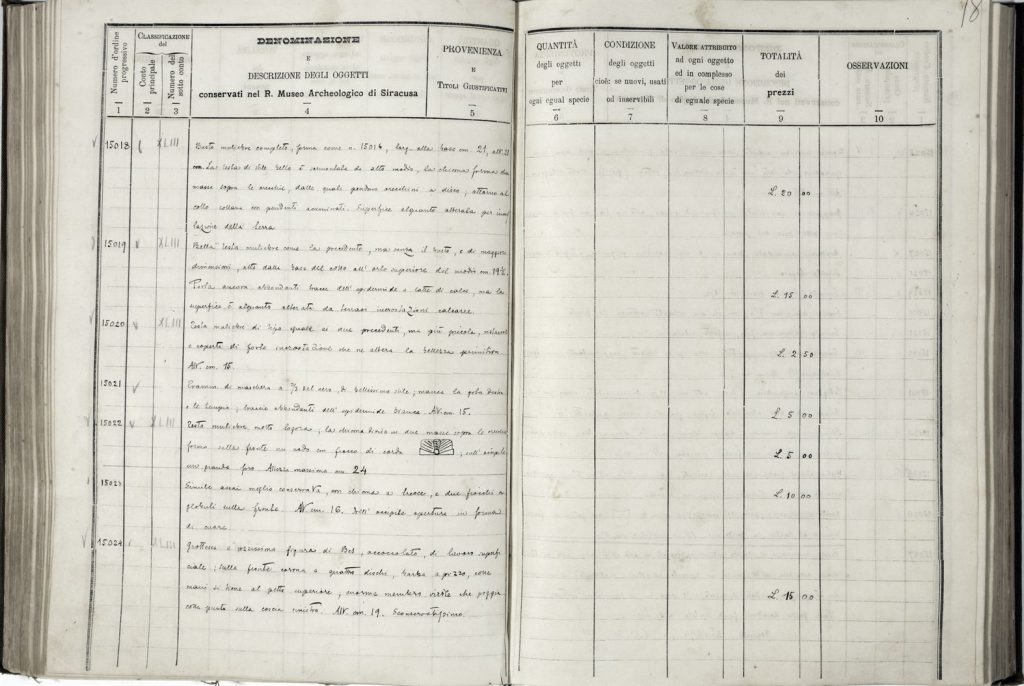 18
Numero d'ordine progressivo
CLASSIFICAZIONE del
Conto principale
Numero del sotto conto
DENOMINAZIONE
E
DESCRIZIONE DEGLI OGGETTI
conservati nel R. Museo Archeologico di Siracusa
PROVENIENZA
E
TITOLI GIUSTIFICATIVI
QUANTITÀ
degli oggetti
per
ogni egual specie
CONDIZIONE
degli oggetti
cioè: se nuovi, usati
od inservibili
VALORE ATTRIBUITO
ad ogni oggetto
ed in complesso
per le cose
di eguale specie
TOTALITÀ
dei
prezzi
OSSERVAZIONI
1 2 3 4 5 6 7 8 9 10
15018 XLIII Busto muliebre completo, forma come n. 15016, larg. alla base cm. 21, alt. 
cm. La testa di stile bello è sormontata da alto modio, la chioma forma due
masse sopra le orecchie, dalle quali pendono orecchini a disco; attorno al
collo collana con pendenti acuminati. Superficie alquanto alterata per 
della terra L. 20 00
15019 XLIII Bella testa muliebre come la precedente, ma senza il busto, e di maggiori
dimensioni, alta dalla base del collo all'orlo superiore del modio cm. 19½.
Porta ancora abbondanti tracce dell'epidermide o latte di calce, ma la
superficie è alquanto alterata da terrose incrostazioni calcaree. L. 15 00
15020 XLIII Testa muliebre di tipo eguale ai due precedenti, ma più piccola,
e coperta di forte incrostazione che ne altera la bellezza primitiva.
Alt. cm. 15. L. 2 50
15021 di maschera a ⅔ del vero, di bellissimo stile; manca la gota destra
e le tempia; traccie abbondanti dell'epidermide bianca. Alt. cm. 15. L. 5 00
15022 XLIII Testa muliebre, molto logora; la chioma divisa in due masse sopra le orecchie
forma sulla fronte un nodo con fiocco di corda ; sull'occipite
un grande foro. Altezza massima cm. 24 L. 5 00
15023 Simile assai meglio conservata, con chioma a treccie, e due fiocchi o
globuli sulla fronte. Alt. cm. 16. Nell'occipite apertura in forma
di cuore. L. 10 00
15024 XLIII Grottesca e oscenissima figura di Bes, accoccolato, di lavoro superfi-
ciale; sulla fronte corona a quattro dischi, barba a pizzo, colle
mani si tiene al petto superiore, enorme membro virile che poggia
colla punta sulla coscia sinistra. Alt. cm. 19. L. 15 00